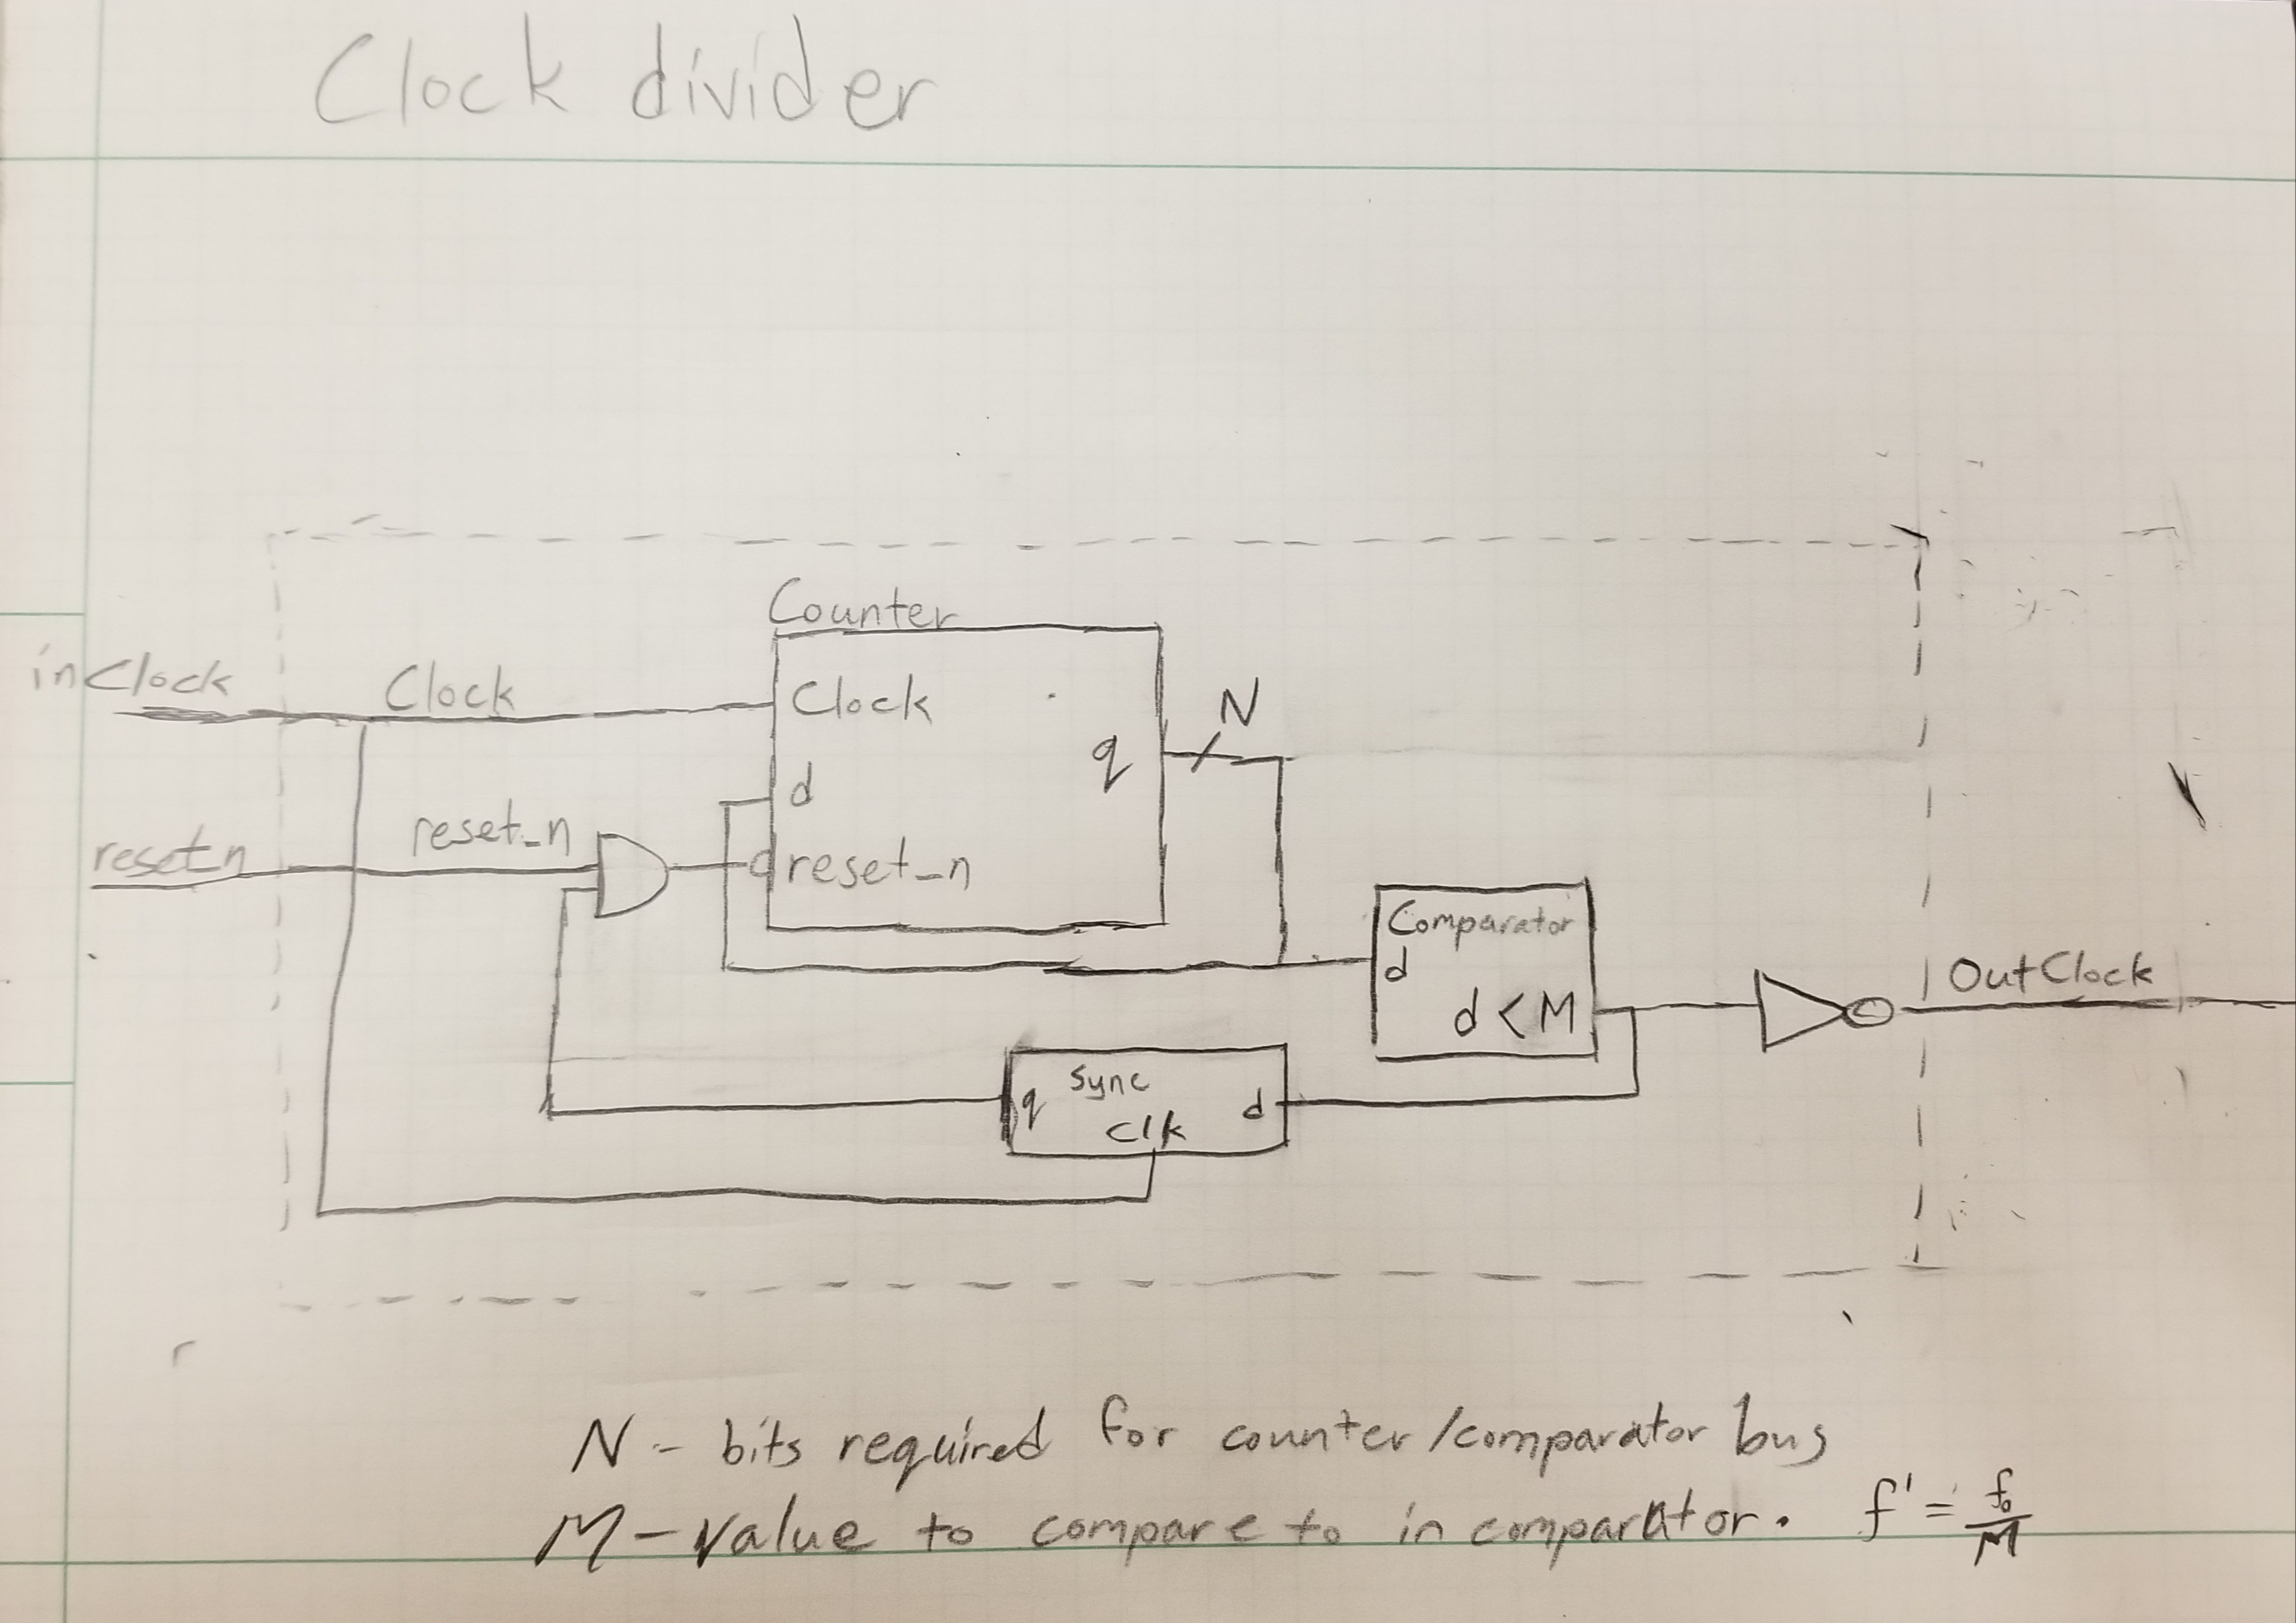 Clock divider
Counter
inClock
Clock
Clock
N
q
d
reset_n
resetn
reset_n
Comparator
d
d < M
OutClock
Sync
q
d
Clk
N - bits required for counter/comparator bus
M - value to compare to in comparator. f' = f₀/M